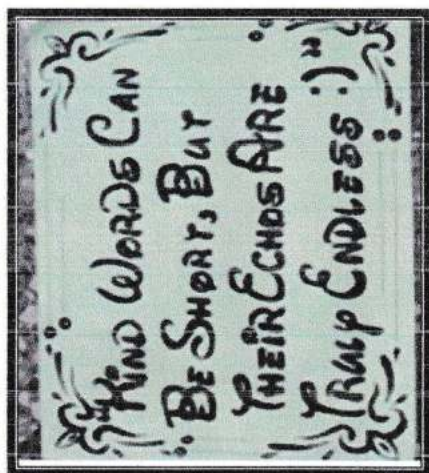 "Kind Words Can
Be Short, But
Their Echos Are
Truly Endless :)"